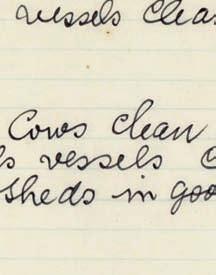 vessels clea
Cows clean
ls vessels c
sheds in goo